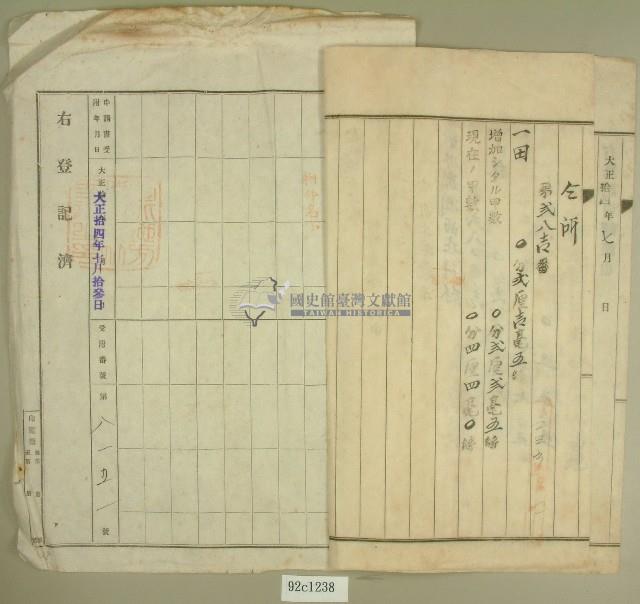 大正拾四年七月 日
仝所
第弐八壱番
一田 〇分弐厘壱毫五
増加シタル甲数 〇分弐厘弐毫五
現在ノ甲数 〇分四厘四毫〇
國史館臺灣文獻館
TAIWAN HISTORICA
申請書受附年月日 大正
大正拾四年七月拾參日
受附番號 第八一五一號
右登記濟
92c1238